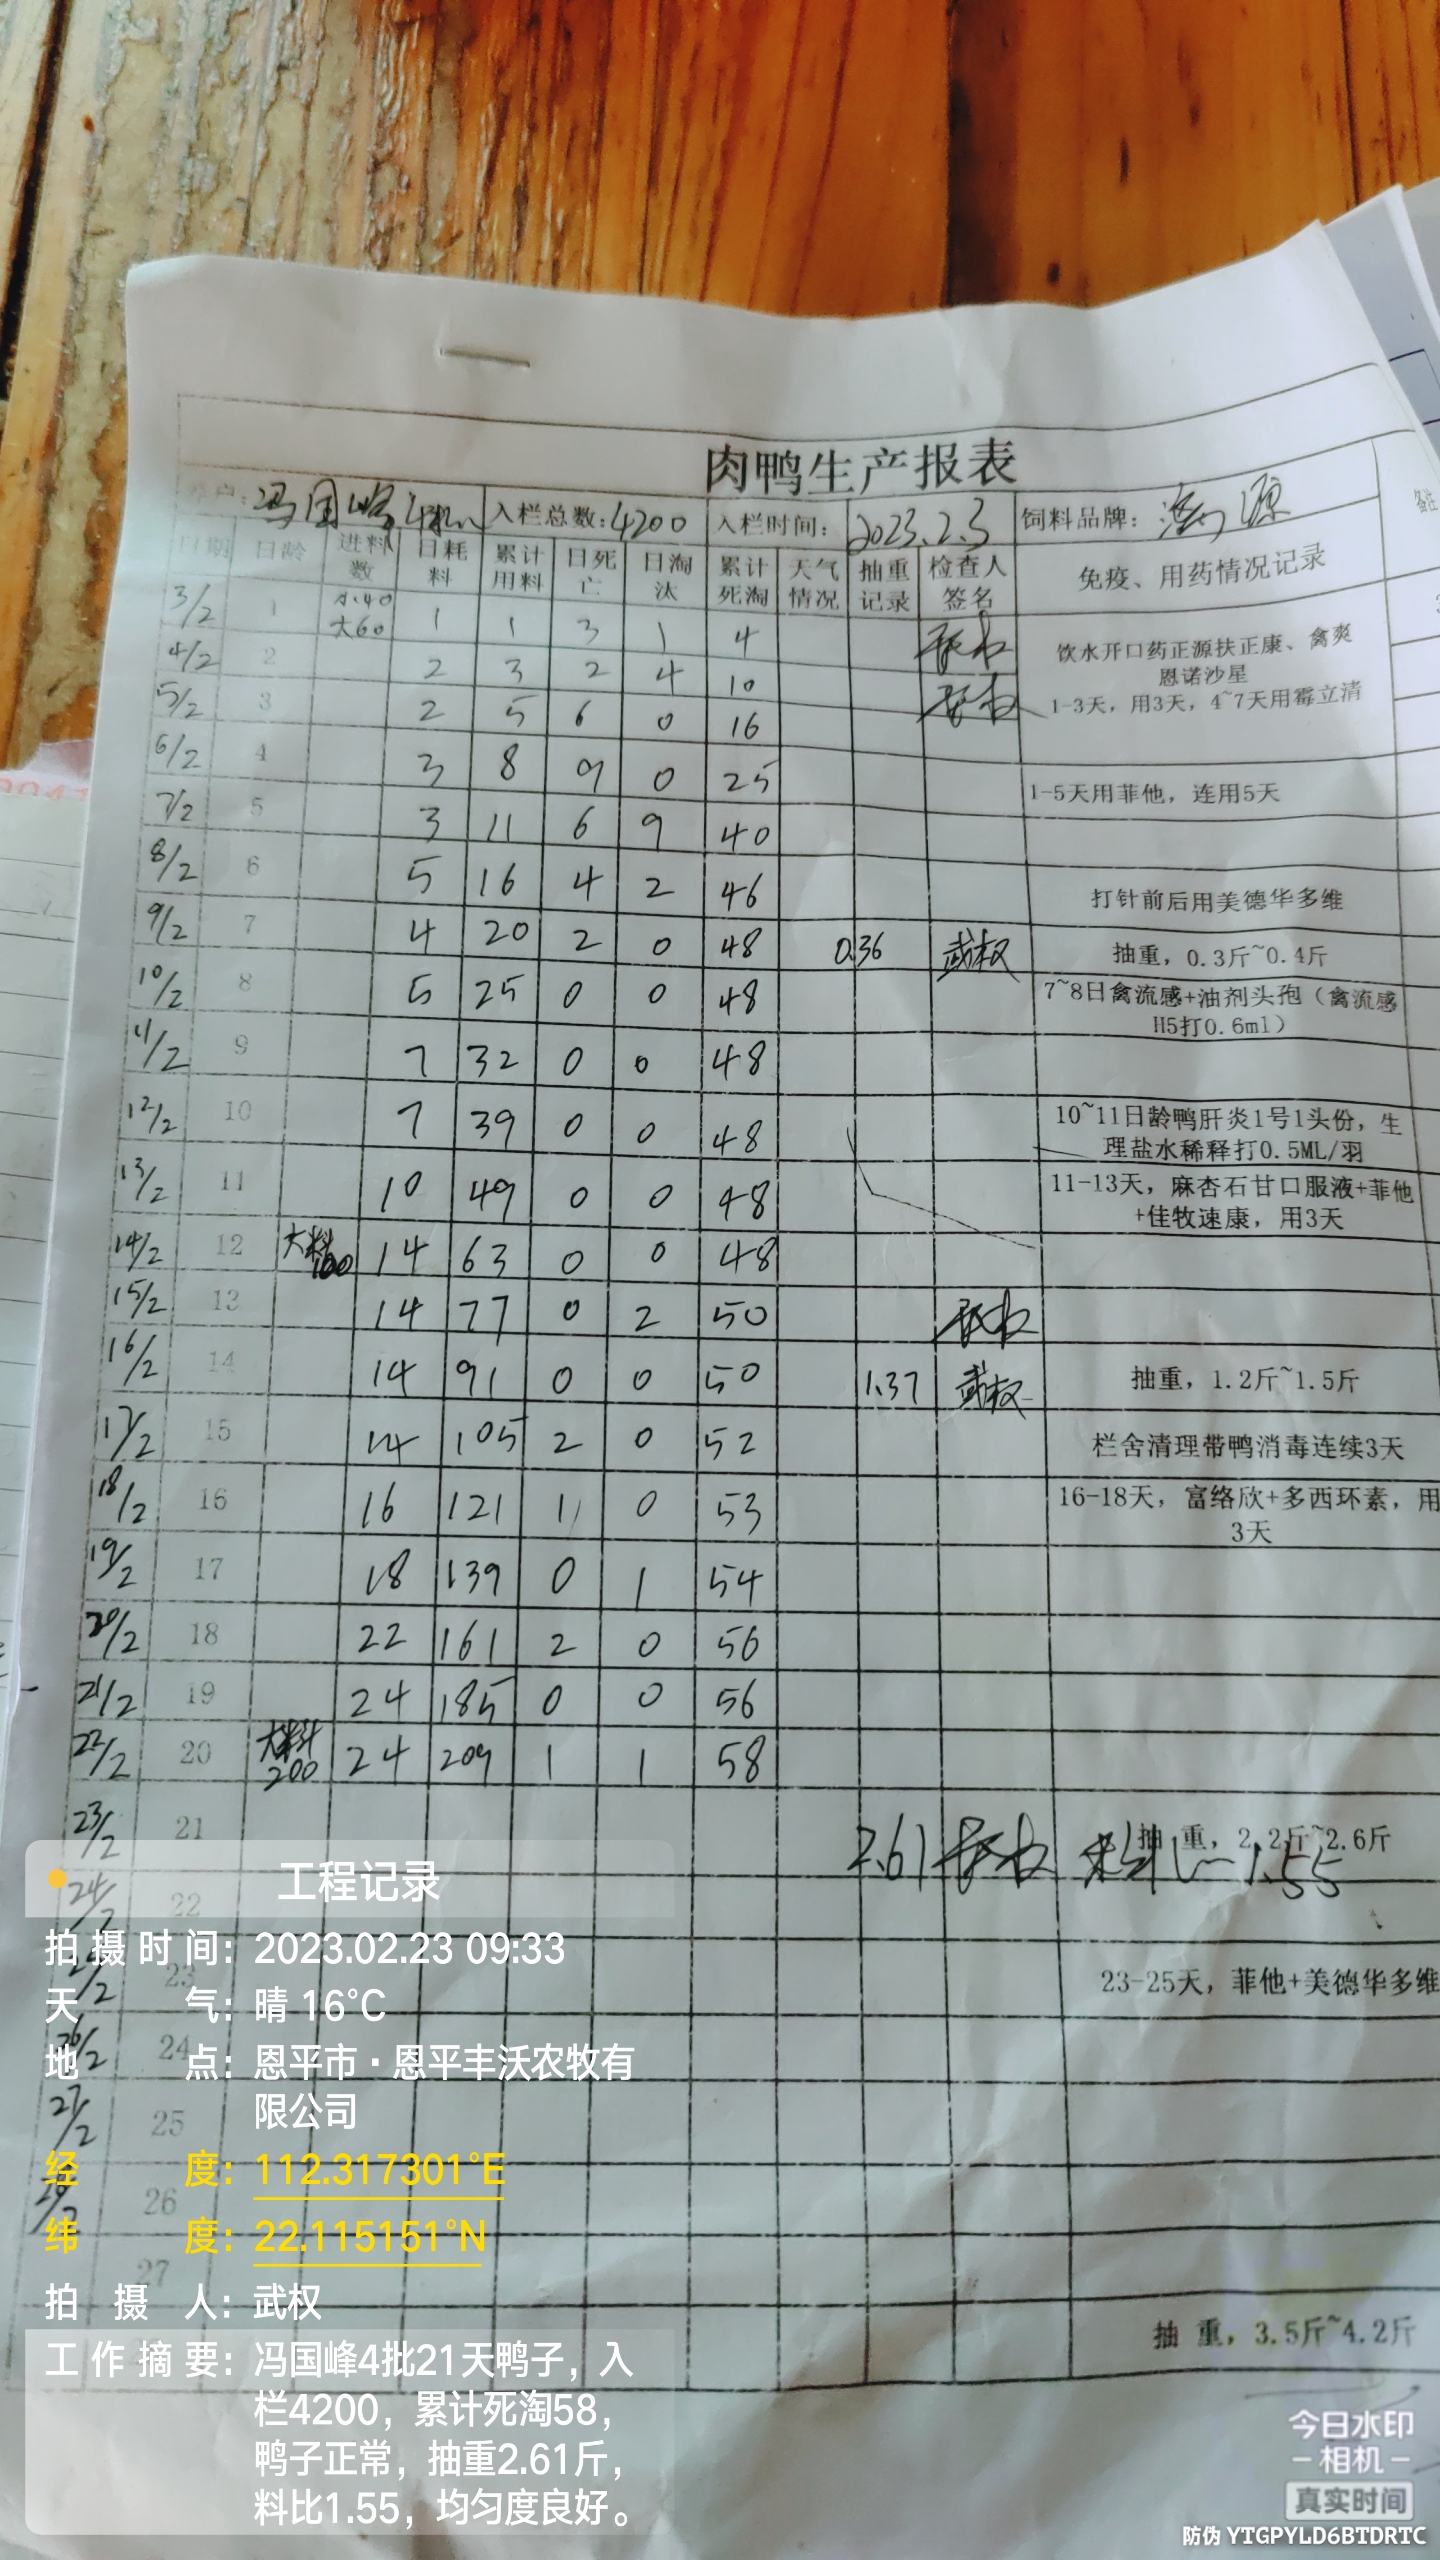 肉鸭生产报表
户: 冯国峰4批 入栏总数: 4200 入栏时间: 2023.2.3 饲料品牌: 源 备注
日期 日龄 进料数 日耗料 累计用料 日死亡 日淘汰 累计死淘 天气情况 抽重记录 检查人签名 免疫、用药情况记录
3/2 1 小40 大60 1 1 3 1 4 武权
饮水开口药正源扶正康、禽爽
恩诺沙星
4/2 2 2 3 2 4 10 武权
1-3天，用3天，4~7天用霉立清
5/2 3 2 5 6 0 16
6/2 4 3 8 9 0 25 1-5天用菲他，连用5天
7/2 5 3 11 6 9 40
8/2 6 5 16 4 2 46 打针前后用美德华多维
9/2 7 4 20 2 0 48 0.36 武权 抽重，0.3斤~0.4斤
10/2 8 5 25 0 0 48 7~8日禽流感+油剂头孢（禽流感
H5打0.6ml）
11/2 9 7 32 0 0 48
12/2 10 7 39 0 0 48 10~11日龄鸭肝炎1号1头份，生
理盐水稀释打0.5ML/羽
13/2 11 10 49 0 0 48 11-13天，麻杏石甘口服液+菲他
+佳牧速康，用3天
14/2 12 大料100 14 63 0 0 48
15/2 13 14 77 0 2 50 武权
16/2 14 14 91 0 0 50 1.37 武权 抽重，1.2斤~1.5斤
17/2 15 14 105 2 0 52 栏舍清理带鸭消毒连续3天
18/2 16 16 121 1 0 53 16-18天，富络欣+多西环素，用
3天
19/2 17 18 139 0 1 54
20/2 18 22 161 2 0 56
21/2 19 24 185 0 0 56
22/2 20 大料200 24 209 1 1 58
23/2 21 2.61 武权 抽 重，2.2斤~2.6斤
料比1.55
24/2 22
23 23-25天，菲他+美德华多维
26/2 24
27/2 25
26
27
抽 重，3.5斤~4.2斤
工程记录
拍摄时间: 2023.02.23 09:33
天气: 晴 16°C
地点: 恩平市·恩平丰沃农牧有
限公司
经度: 112.317301°E
纬度: 22.115151°N
拍摄人: 武权
工作摘要: 冯国峰4批21天鸭子，入
栏4200，累计死淘58，
鸭子正常，抽重2.61斤，
料比1.55，均匀度良好。
今日水印
-相机-
真实时间
防伪 YTGPYLD6BTDRTC